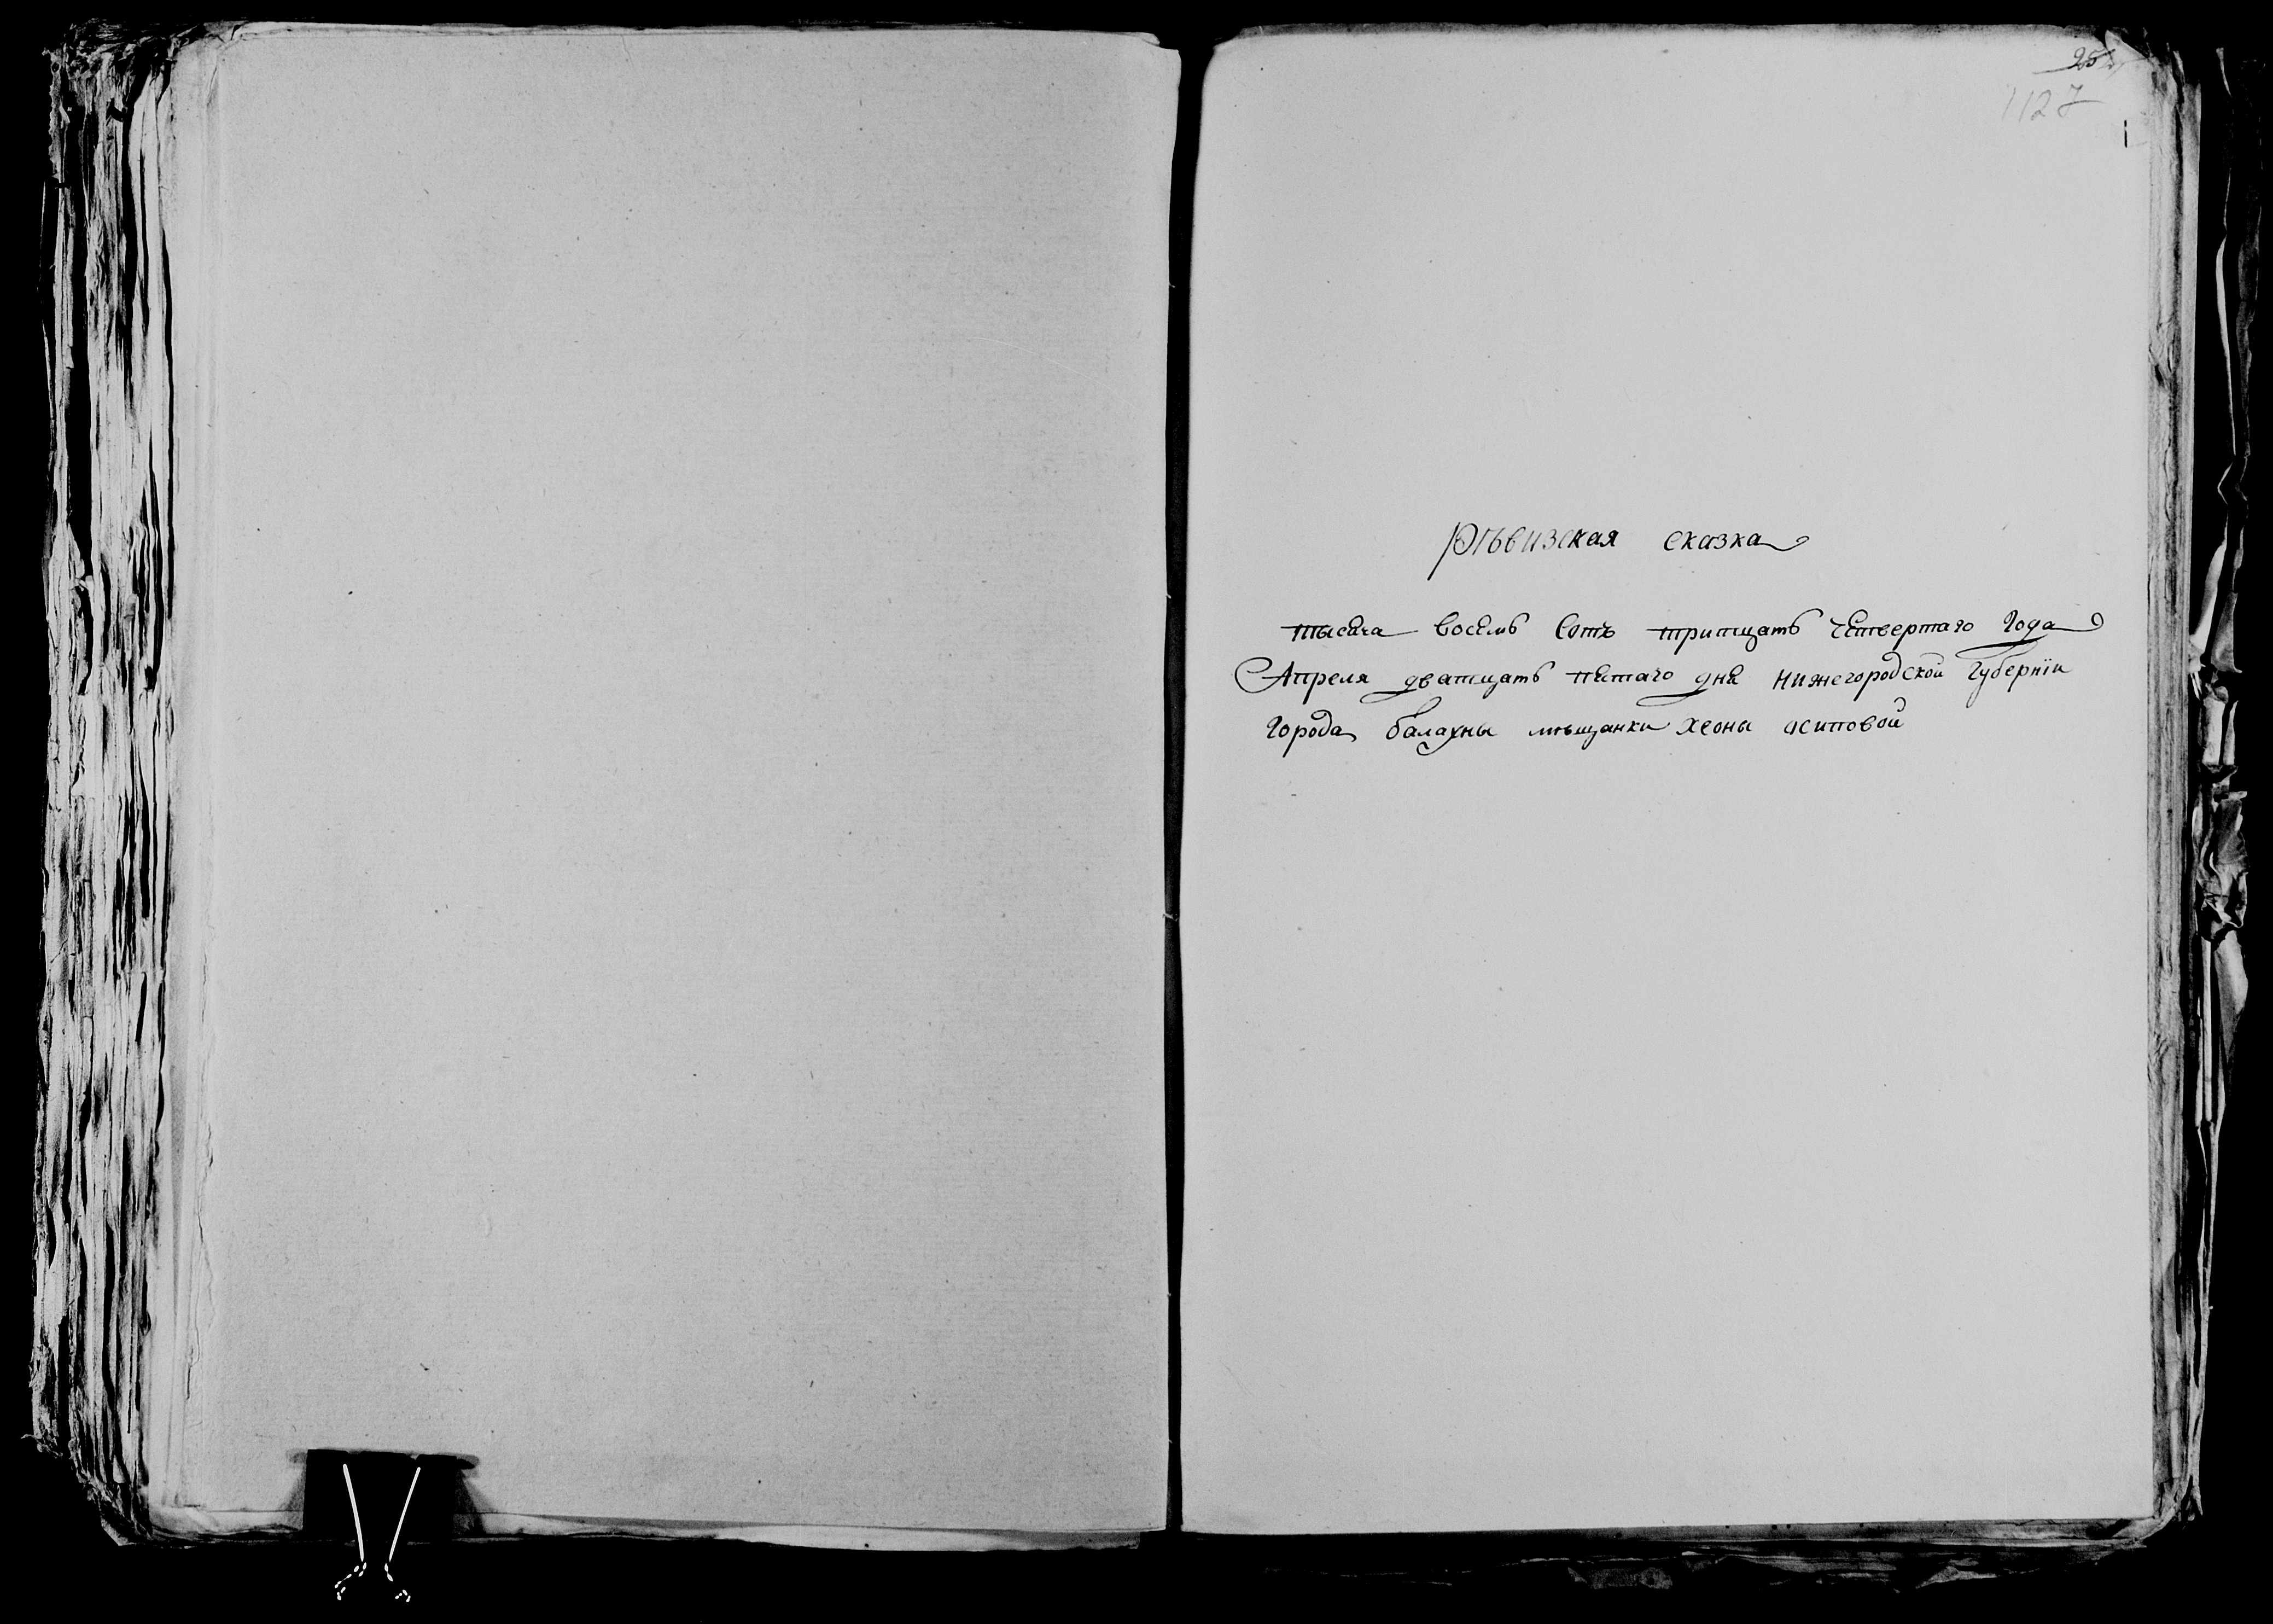 1127
Рѣвизская сказка
тысеча восемь сотъ тритцать четвертаго Года
Апреля дватцать петаго дне нижегородской Губернїи
Города балахны мѣщанки хеоны осиповой